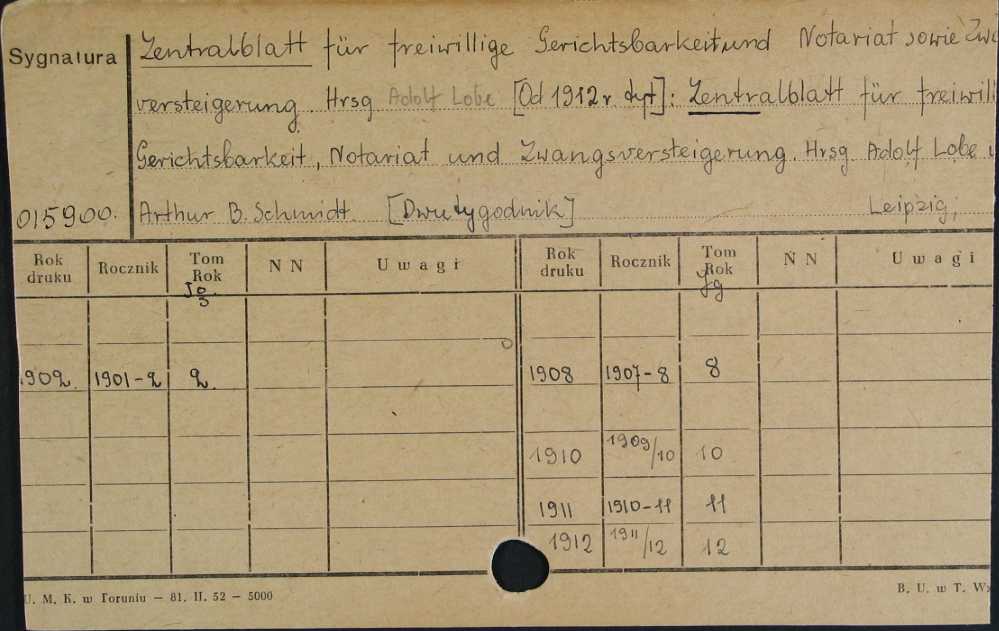 Sygnatura
Zentralblatt für freiwillige Gerichtsbarkeit und Notariat sowie Zwa
versteigerung. Hrsg Adolf Lobe [Od 1912 r. tyt]: Zentralblatt für freiwill
Gerichtsbarkeit, Notariat und Zwangsversteigerung. Hrsg Adolf Lobe u
015900. Arthur B. Schmidt. [Dwutygodnik] Leipzig,
Rok druku Rocznik Tom Rok N N Uwagi Rok druku Rocznik Tom Rok N N Uwagi
Jg
1902 1901-2 2. 1908 1907-8 8
1910 1909/10 10
1911 1910-11 11
1912 1911/12 12
U. M. K. w Toruniu — 81. II. 52 — 5000 B. U. w T. Wz